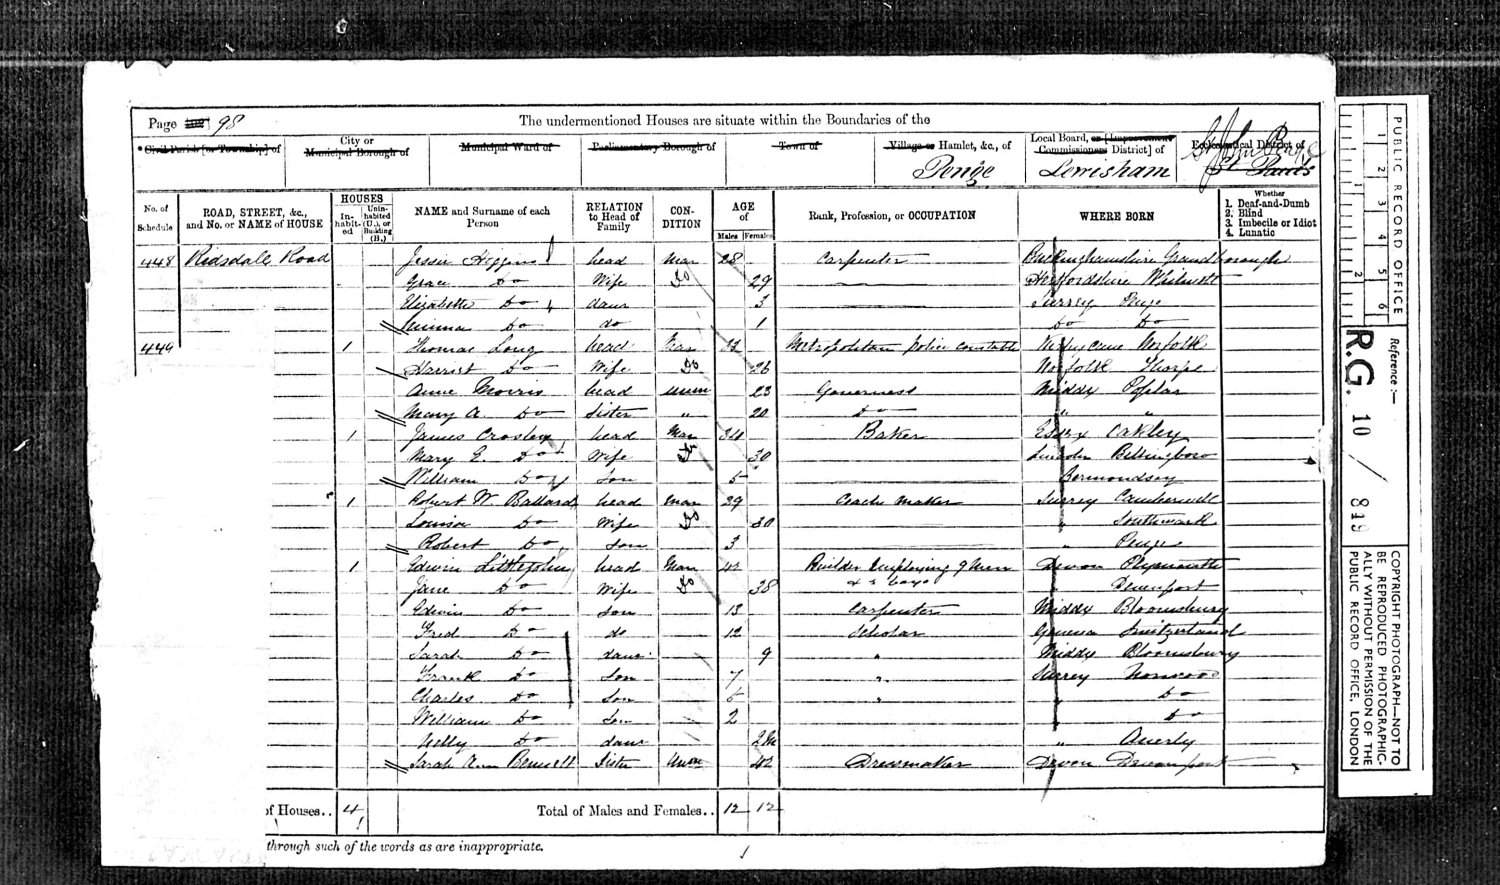 Page 98
The undermentioned Houses are situate within the Boundaries of the
Civil Parish [or Township] of
City or Municipal Borough of
Municipal Ward of
Parliamentary Borough of
Town of
Village or Hamlet, &c., of
Penge
Local Board, or [Improvement Commissioners District] of
Lewisham
Ecclesiastical District of
St John Penge
St Pauls
No. of Schedule
ROAD, STREET, &c., and No. or NAME of HOUSE
HOUSES
In-habit-ed
Unin-habited (U.), or Building (B.)
NAME and Surname of each Person
RELATION to Head of Family
CON-DITION
AGE of
Males Females
Rank, Profession, or OCCUPATION
WHERE BORN
Whether
1. Deaf-and-Dumb
2. Blind
3. Imbecile or Idiot
4. Lunatic
448 Ridsdale Road Jessie Higgins head Mar 28 Carpenter Buckinghamshire Grandborough
Grace Do Wife Do 29 Hertfordshire
Elizabeth Do daur 3 Surrey Penge
Do do 1 Do Do
449 1 Thomas Long head Mar Metropolitan police constable Norfolk
Harriet Do Wife Do 26 Norfolk Thorpe
Anne Morris head unm 23 Governess Middx Poplar
Mary A Do Sister " 20 Do " "
1 James Crosby head Mar Baker Essex Oakley
Mary E. Do Wife Do 30 Lincoln
William Do Son 5 Bermondsey
1 Robert W. Ballard head Mar 29 Coach maker Surrey Camberwell
Louisa Do Wife Do 30 " Southwark
Robert Do Son 3 " Penge
1 Edwin Littlejohn head Mar 42 Builder Employing 9 Men Devon Plymouth
Jane Do Wife Do 38 boys " Devonport
Edwin Do Son 13 Carpenter Middx Bloomsbury
Fred Do do 12 Scholar Geneva Switzerland
Sarah Do daur 9 " Middx Bloomsbury
Frank Do Son 7 " Surrey Norwood
Charles Do Son 5 " " Do
William Do Son 2 " Do
Nelly Do daur 2m " Anerly
Sarah Ann Bennett Sister Unm 42 Dressmaker Devon Devonport
of Houses.. 4
Total of Males and Females.. 12 12
through such of the words as are inappropriate.
PUBLIC RECORD OFFICE
1 2 3 4 5 6
1 2
Reference :—
R.G. 10 / 849
COPYRIGHT PHOTOGRAPH—NOT TO
BE REPRODUCED PHOTOGRAPHIC-
ALLY WITHOUT PERMISSION OF THE
PUBLIC RECORD OFFICE, LONDON